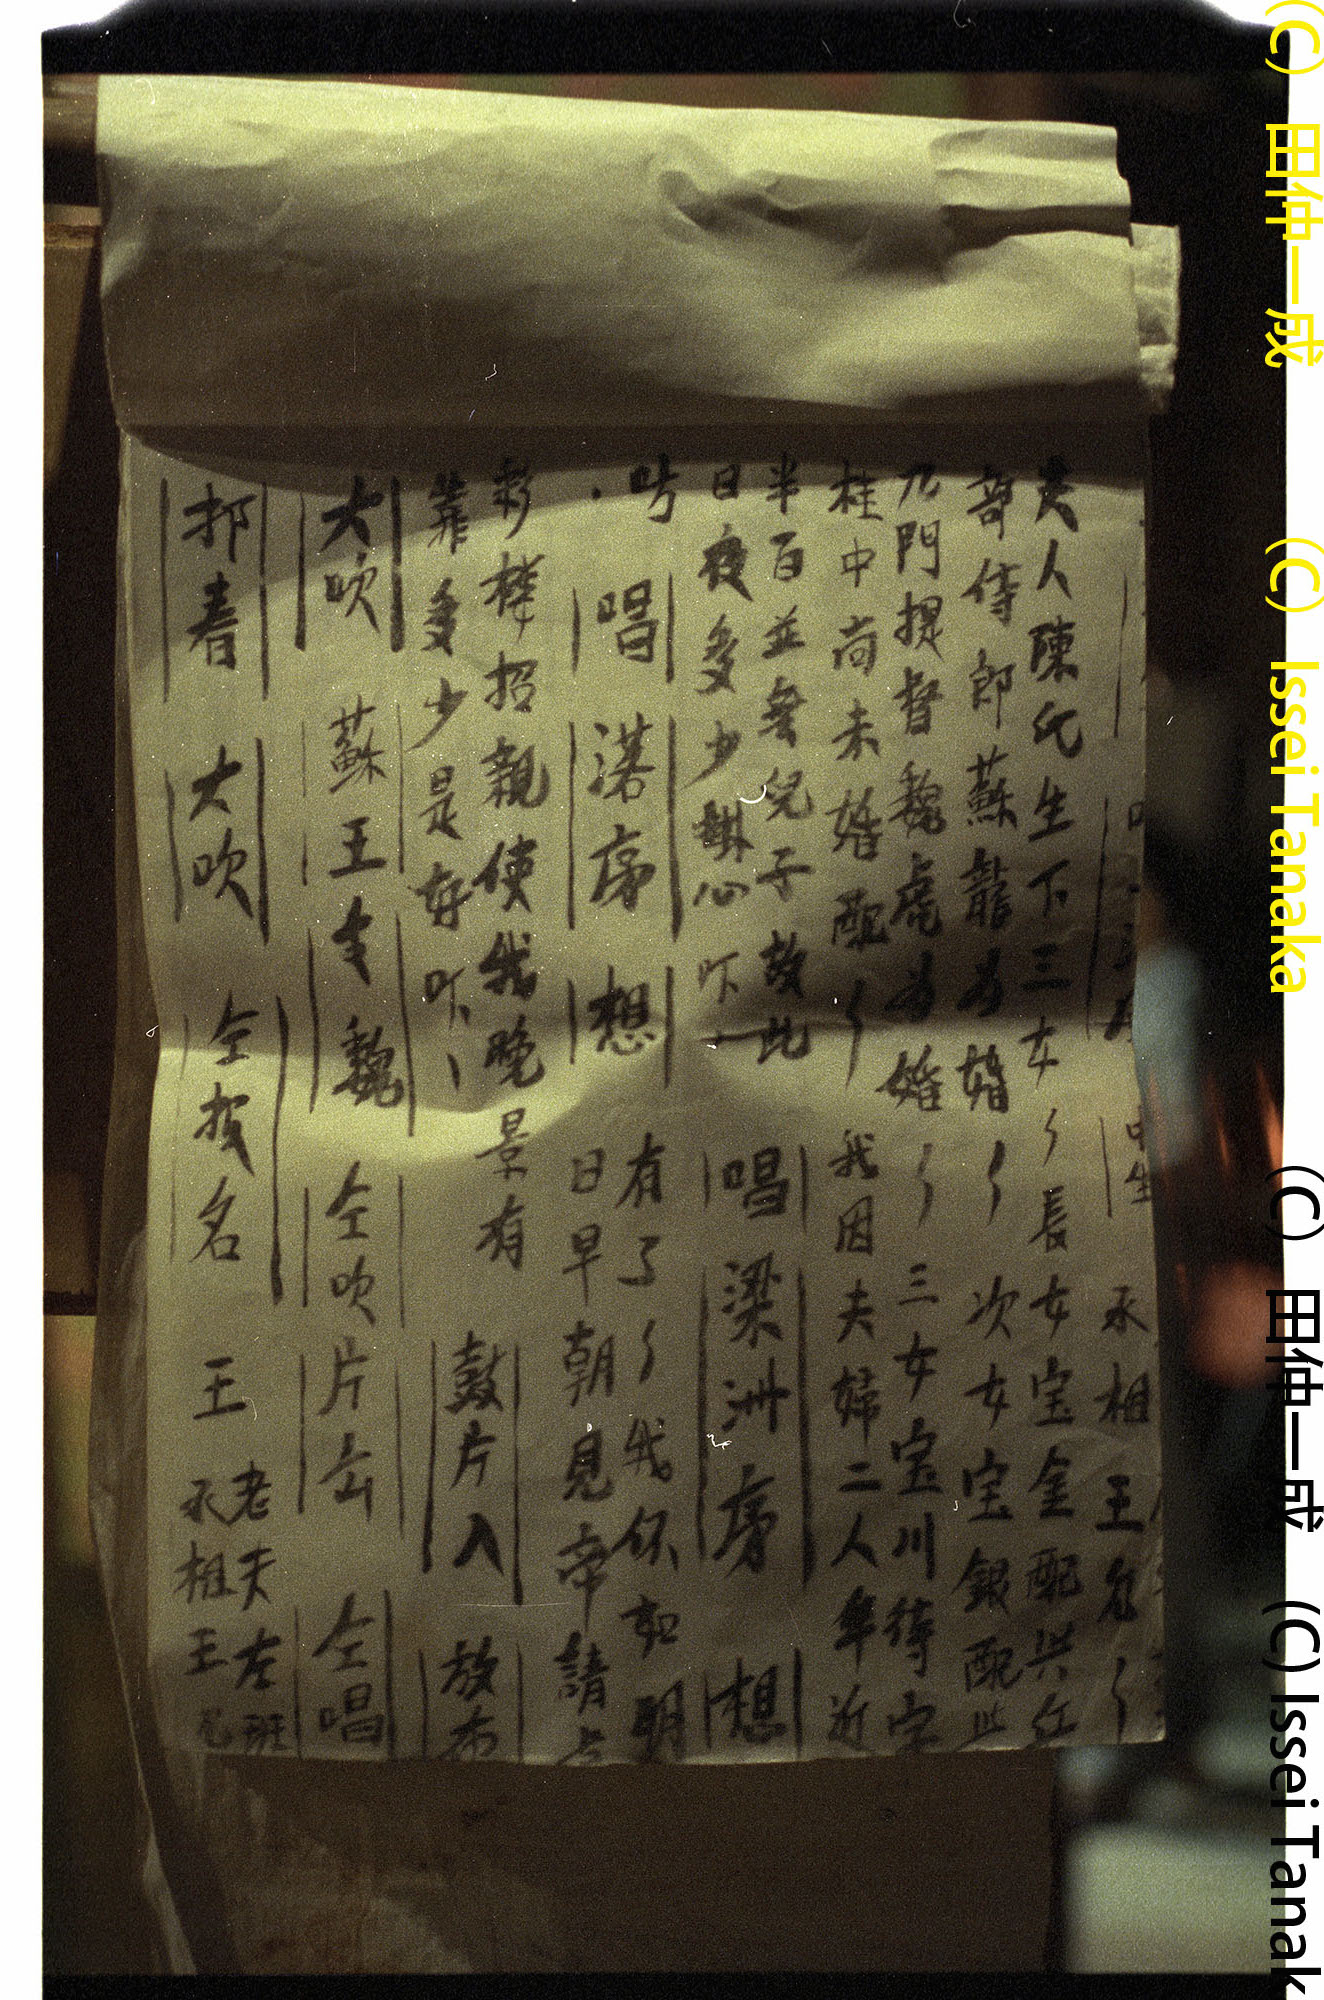 中生 永相 王允〻
夫人陳氏生下三女〻長女宝金配
苛侍郎蘇龍為婚〻次女宝銀配
九門提督魏虎為婚〻三女宝川待字
桂中尚未婚配〻我因夫婦二人年近
半百並無兒子故此 唱 梁洲序 想
日夜多少掛心吓
有了〻我你如明
唱 滛序 想 日早朝見帝請
彩樓招親使我晚景有
靠多少是好吓 鼓片入 放
大吹 蘇王 魏 仝吹片 仝唱
大吹 仝 名 王 老夫左班
永相王
(C) 田仲一成 (C) Issei Tanaka
(C) 田仲一成 (C) Issei Tanak